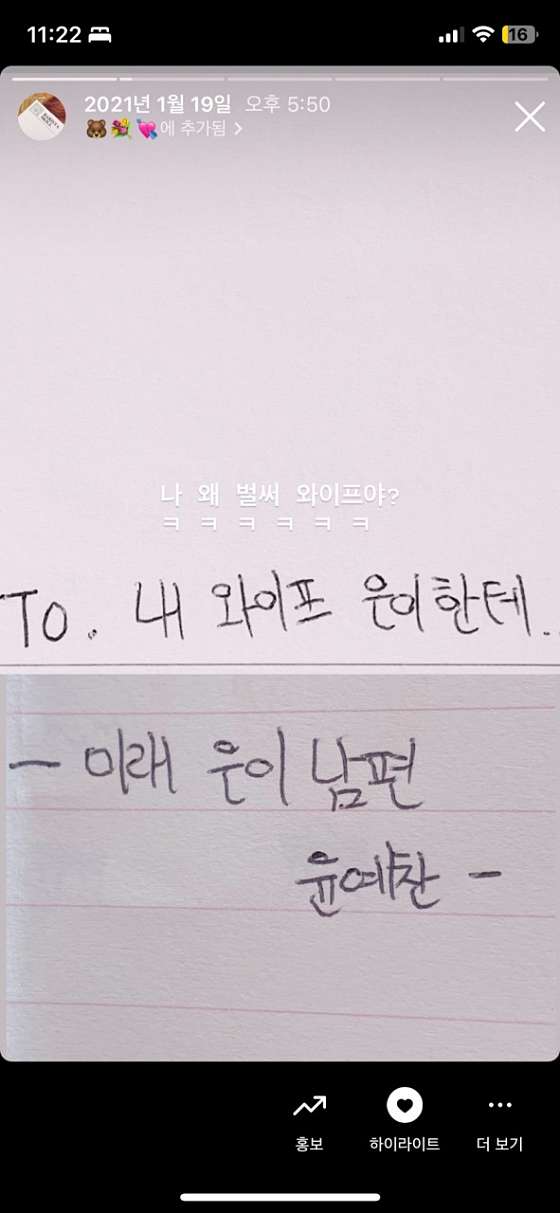 11:22
16
2021년 1월 19일 오후 5:50
🐻💐💘에 추가됨 >
나 왜 벌써 와이프야?
ㅋ ㅋ ㅋ ㅋ ㅋ ㅋ
To. 내 와이프 은이한테..
- 미래 은이 남편
윤예찬 -
홍보
하이라이트
더 보기